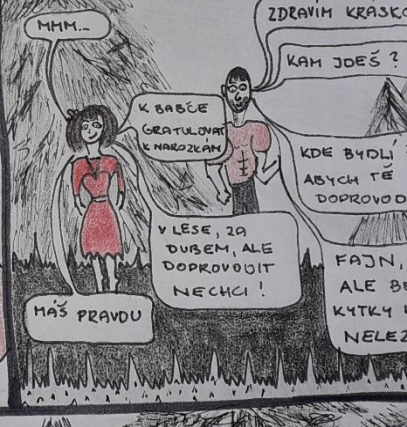 ZDRAVÍM
KAM JDEŠ?
K BABČE
GRATULOVAT
K NAROZKÁM
KDE BYDLÍ
ABYCH TĚ
V LESE, ZA
DUBEM, ALE
DOPROVODIT
NECHCI!
FAJN,
ALE
KYTKY
MMM...
MÁŠ PRAVDU